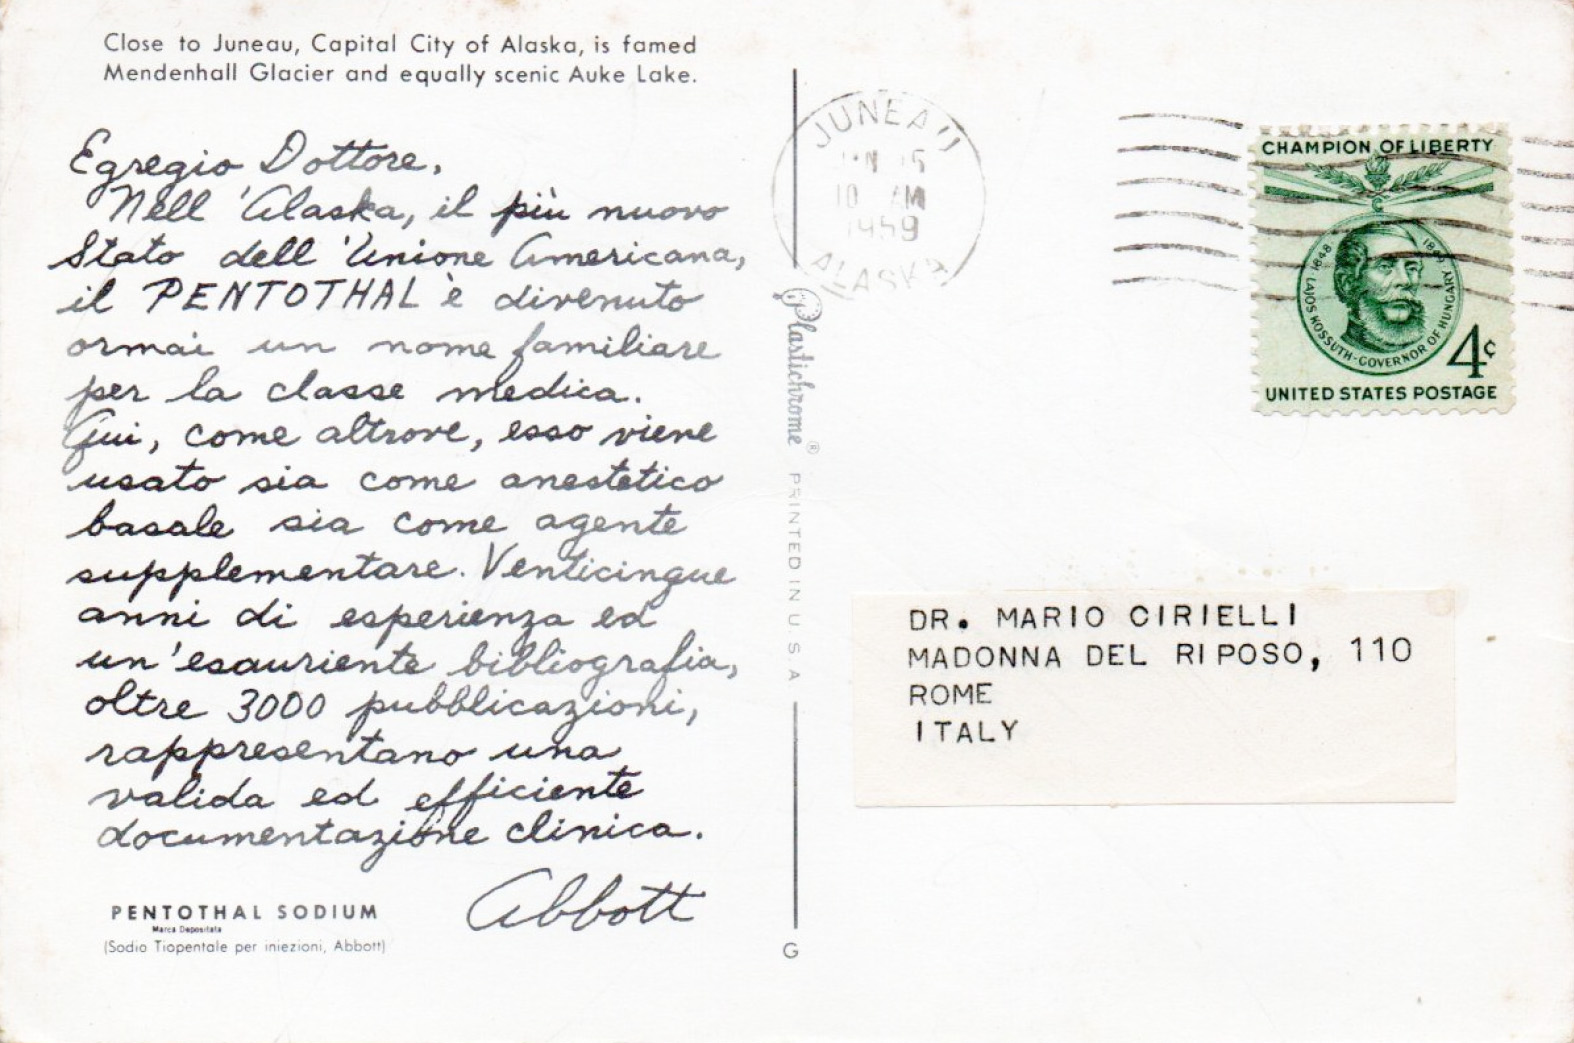 Close to Juneau, Capital City of Alaska, is famed
Mendenhall Glacier and equally scenic Auke Lake.
Egregio Dottore,
Nell'Alaska, il più nuovo
Stato dell'Unione Americana,
il PENTOTHAL è divenuto
ormai un nome familiare
per la classe medica.
Qui, come altrove, esso viene
usato sia come anestetico
basale sia come agente
supplementare. Venticinque
anni di esperienza ed
un'esauriente bibliografia,
oltre 3000 pubblicazioni,
rappresentano una
valida ed efficiente
documentazione clinica.
Abbott
PENTOTHAL SODIUM
Marca Depositata
(Sodio Tiopentale per iniezioni, Abbott)
Plastichrome® PRINTED IN U.S.A.
G
JUNEAU
10 AM
1959
ALASKA
CHAMPION OF LIBERTY
LAJOS KOSSUTH-GOVERNOR OF HUNGARY
4¢
UNITED STATES POSTAGE
DR. MARIO CIRIELLI
MADONNA DEL RIPOSO, 110
ROME
ITALY